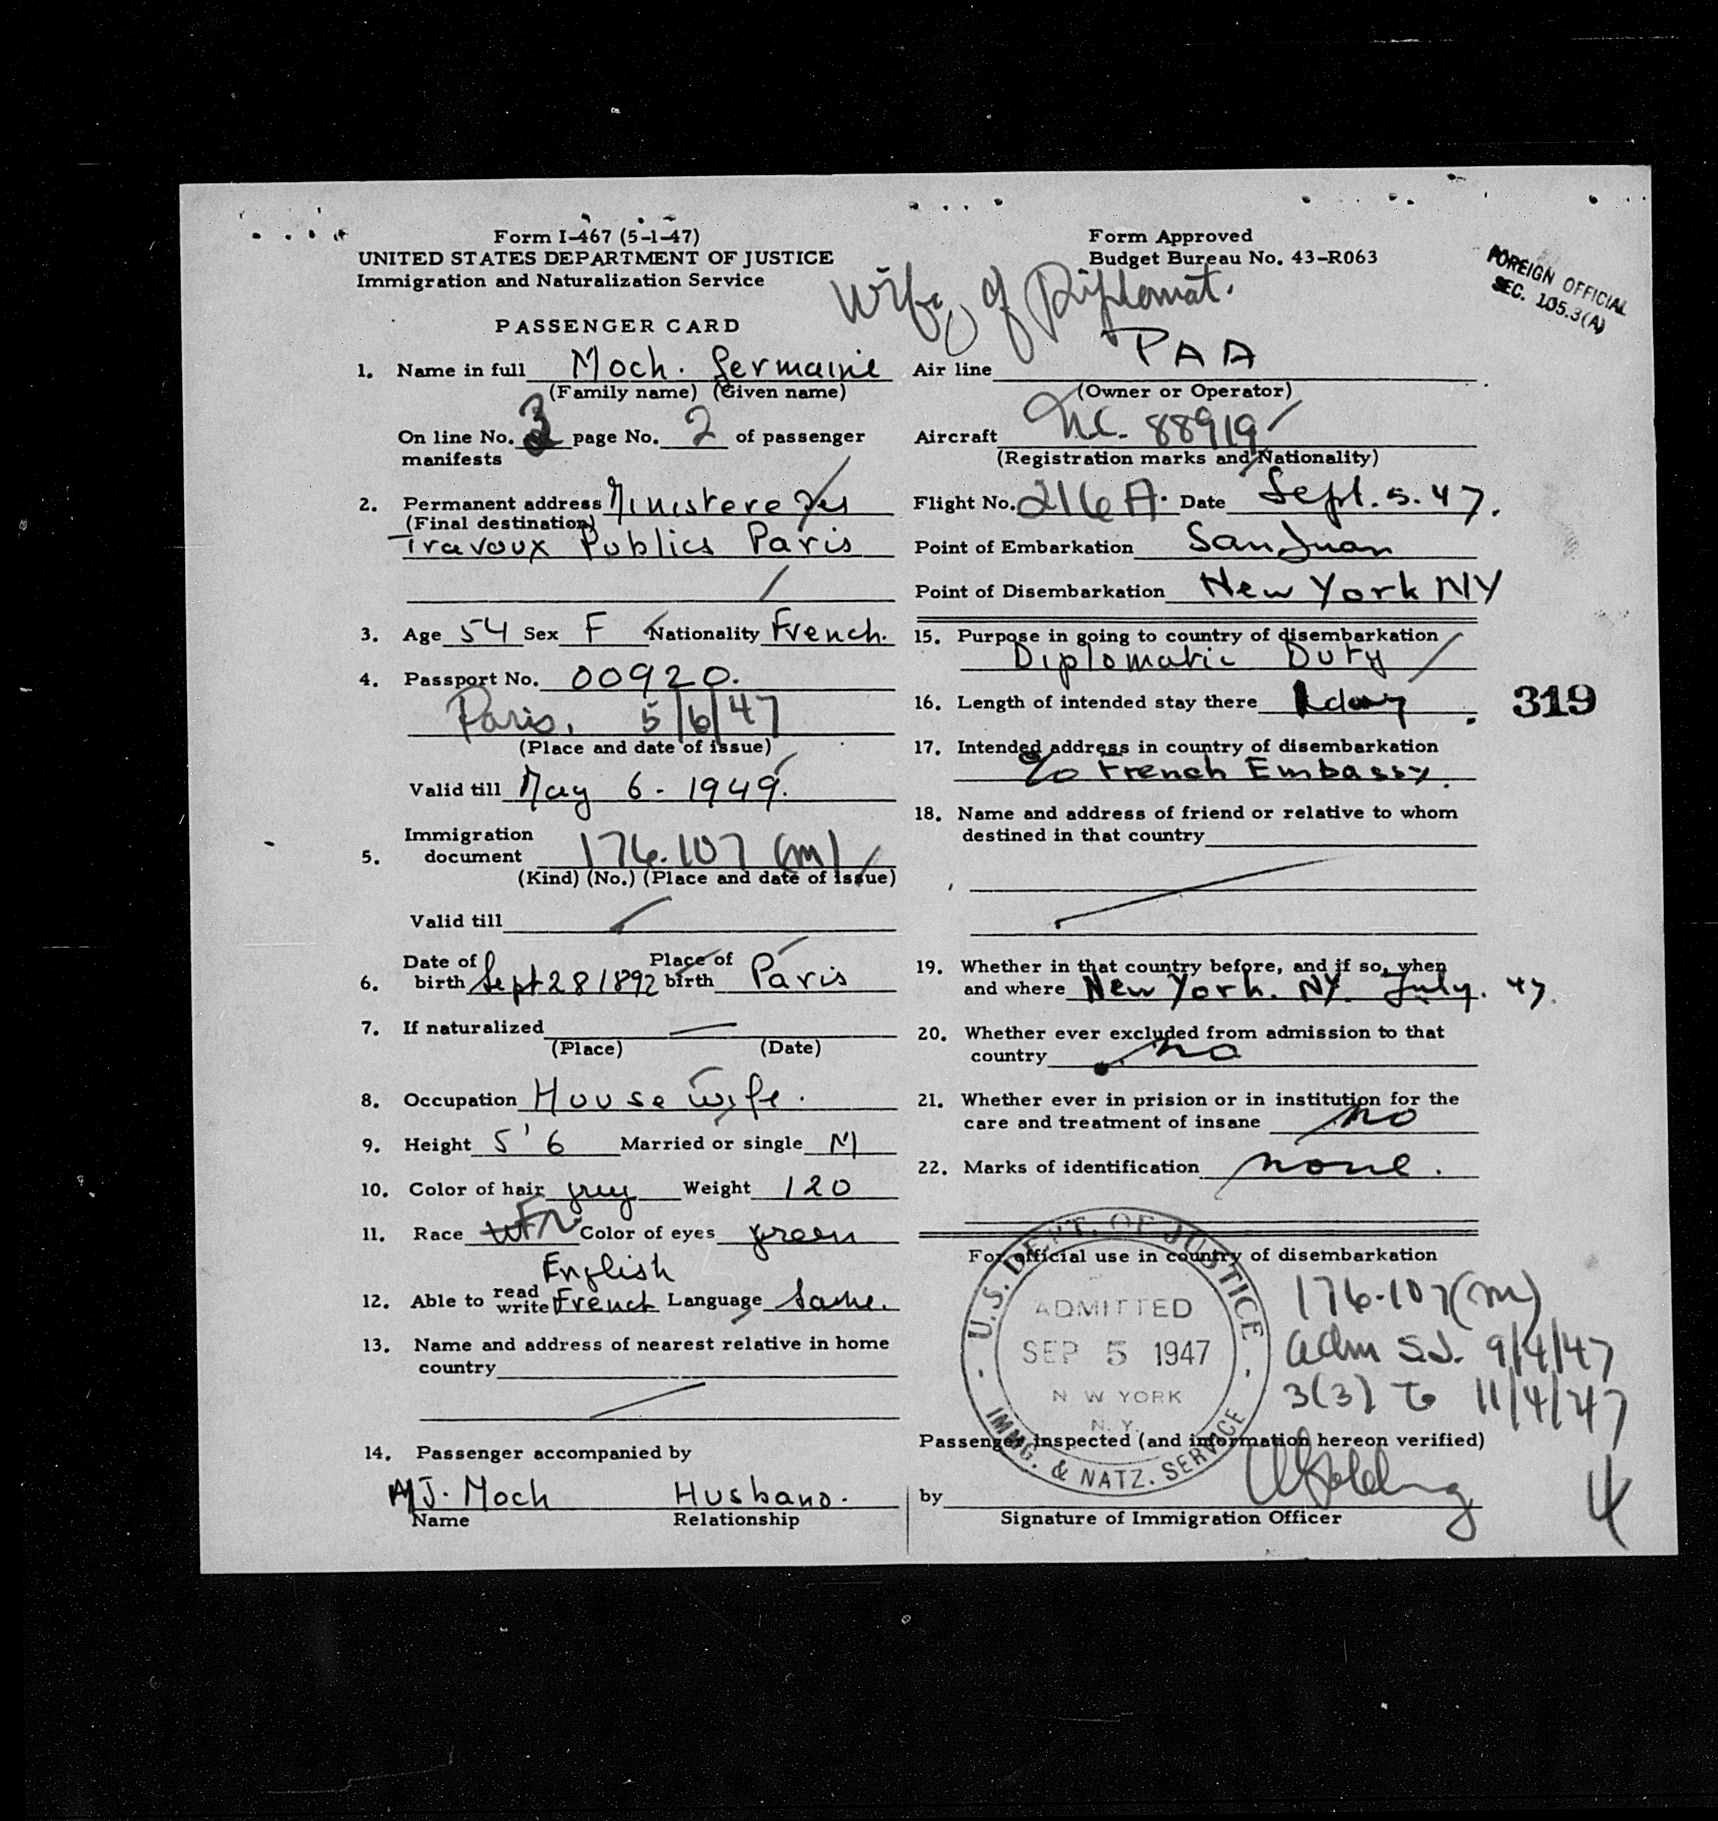 Form I-467 (5-1-47)
UNITED STATES DEPARTMENT OF JUSTICE
Immigration and Naturalization Service
PASSENGER CARD
Form Approved
Budget Bureau No. 43-R063
FOREIGN OFFICIAL
SEC. 105.3(A)
Wife of Diplomat.
1. Name in full Moch. Germaine
(Family name) (Given name)
On line No. 3 page No. 2 of passenger
manifests
2. Permanent address Ministere des
(Final destination)
Travoux Publics Paris
3. Age 54 Sex F Nationality French.
4. Passport No. 00920.
Paris, 5/6/47
(Place and date of issue)
Valid till May 6 - 1949.
Immigration
5. document 176.107 (m)
(Kind) (No.) (Place and date of issue)
Valid till
Date of Place of
6. birth Sept 28 1892 birth Paris
7. If naturalized
(Place) (Date)
8. Occupation House wife.
9. Height 5'6 Married or single M
10. Color of hair grey Weight 120
11. Race Fr Color of eyes green
English
12. Able to read write French Language Same.
13. Name and address of nearest relative in home
country
14. Passenger accompanied by
MJ. Moch Husband.
Name Relationship
Air line PAA
(Owner or Operator)
Aircraft NC. 88919
(Registration marks and Nationality)
Flight No. 216A. Date Sept. 5. 47.
Point of Embarkation San Juan
Point of Disembarkation New York NY
15. Purpose in going to country of disembarkation
Diplomatic Duty
16. Length of intended stay there 1 day.
319
17. Intended address in country of disembarkation
c/o French Embassy.
18. Name and address of friend or relative to whom
destined in that country
19. Whether in that country before, and if so, when
and where New York. NY. July. 47.
20. Whether ever excluded from admission to that
country no
21. Whether ever in prision or in institution for the
care and treatment of insane no
22. Marks of identification none.
For official use in country of disembarkation
U.S. DEPT. OF JUSTICE
ADMITTED
SEP 5 1947
N W YORK
N. Y.
IMMG. & NATZ. SERVICE
176.107(m)
adm S.J. 9/4/47
3(3) to 11/4/47
Passenger Inspected (and information hereon verified)
by
Signature of Immigration Officer
4